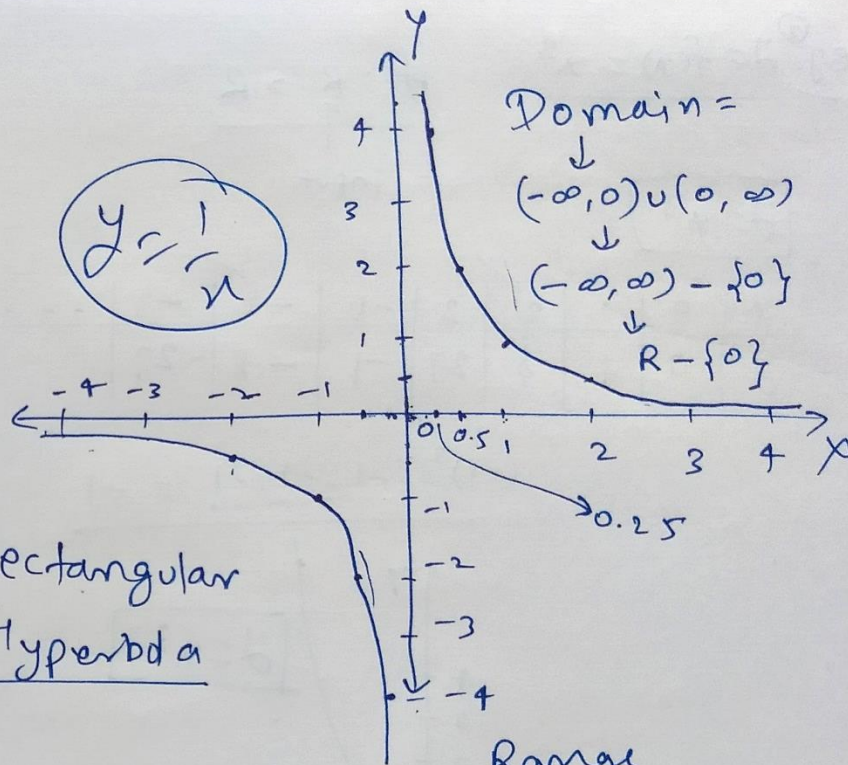 Y
Domain =
↓
(-∞,0)∪(0,∞)
↓
(-∞,∞) - {0}
↓
R - {0}
y = 1/x
4
3
2
1
-4 -3 -2 -1
0 0.5 1 2 3 4 X
0.25
-1
-2
-3
-4
ectangular
Hyperbola
Range